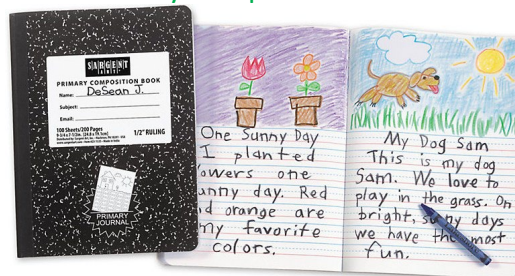 SARGENT
ART
PRIMARY COMPOSITION BOOK
Name: DeSean J.
Subject:
Email:
100 Sheets/200 Pages
9-3/4 x 7-1/2in. (24.8 x 19.1cm)
1/2" RULING
PRIMARY
JOURNAL
One Sunny Day
I planted
owers one
unny day. Red
d orange are
my favorite
colors.
My Dog Sam
This is my dog
Sam. We love to
play in the grass. On
bright, sunny days
we have the most
fun.